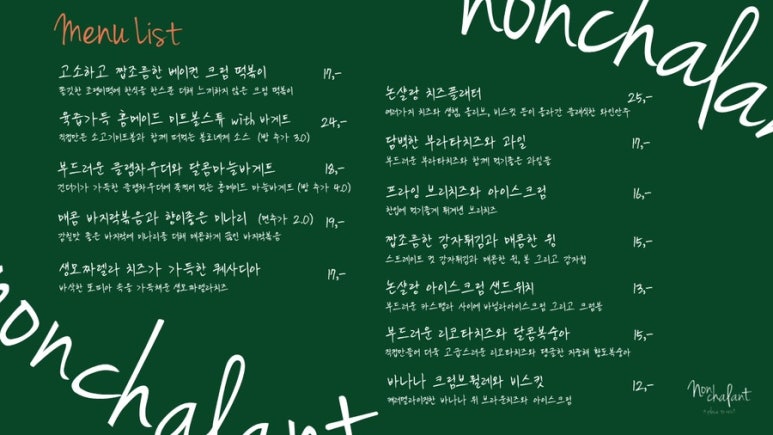 Menu List
고소하고 짭조름한 베이컨 크림 떡볶이 17,-
쫄깃한 오랭이떡에 한식을 한스푼 더해 느끼하지 않은 크림 떡볶이
육즙가득 홈메이드 미트볼스튜 with 바게트 24,-
직접만든 소고기미트볼과 함께 더먹는 볼로네제 소스 (빵 추가 3.0)
부드러운 클램차우더와 달콤마늘바게트 18,-
건더기가 가득한 클램차우더에 푹찍어 먹는 홈메이드 마늘바게트 (빵 추가 4.0)
매콤 바지락볶음과 향이좋은 미나리 (면추가 2.0) 19,-
감칠맛 좋은 바지락에 미나리를 더해 매콤하게 볶은 바지락볶음
생모짜렐라 치즈가 가득한 퀘사디아 17,-
바삭한 또띠아 속을 가득채운 생모짜렐라치즈
nonchalant
nonchalant
논샬랑 치즈플래터 25,-
여러가지 치즈와 샐햄, 올리브, 비스킷 등이 올라간 클래식한 와인안주
담백한 부라타치즈와 과일 17,-
부드러운 부라타치즈와 함께 먹기좋은 과일들
프라잉 브리치즈와 아이스크림 16,-
한입에 먹기좋게 튀겨낸 브리치즈
짭조름한 감자튀김과 매콤한 윙 15,-
스트레이트 컷 감자튀김과 매콤한 윙, 봉 그리고 감자칩
논샬랑 아이스크림 샌드위치 13,-
부드러운 카스텔라 사이에 바닐라아이스크림 그리고 크럼블
부드러운 리코타치즈와 달콤복숭아 15,-
직접만들어 더욱 고급스러운 리코타치즈와 탱글한 지중해 황도복숭아
바나나 크림브륄레와 비스킷 12,-
캐러멜라이징한 바나나 위 브라운치즈와 아이스크림
Non
chalant